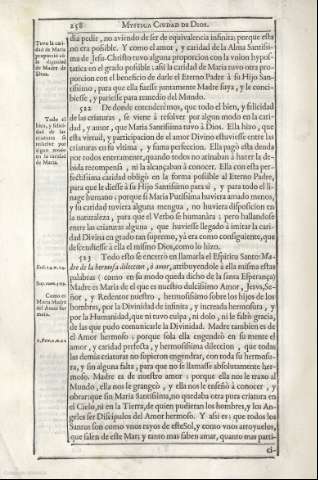 258 MYSTICA CIUDAD DE DIOS.
dia pedir, no aviendo de ser de equivalencia infinita; porque esta
no era possible. Y como el amor, y caridad de la Alma Santissi-
ma de Jesu-Christo tuvo alguna proporcion con la vnion hypos-
tatica en el grado possible: assi la caridad de Maria tuvo otra pro-
porcion con el beneficio de darle el Eterno Padre á su Hijo San-
tissimo, para que ella fuesse juntamente Madre suya, y le conci-
biesse, y pariesse para remedio del Mundo.
Tuvo la cari-
dad de Maria
proporcion cõ
la dignidad
de Madre de
Dios.
522 De donde entenderémos, que todo el bien, y felicidad
de las criaturas, se viene à resolver por algun modo en la cari-
dad, y amor, que Maria Santissima tuvo à Dios. Ella hizo, que
esta virtud, y participacion de el amor Divino estuviesse entre las
criaturas en su vltima, y suma perfeccion. Ella pagò esta deuda
por todos enteramente, quando todos no atinaban à hazer la de-
bida recompensa, ni la alcançaban à conocer. Ella con esta per-
fectissima caridad obligó en la forma possible al Eterno Padre,
para que le diesse á su Hijo Santissimo para sí, y para todo el li-
nage humano; porque si Maria Purissima huviera amado menos,
y su caridad tuviera alguna mengua, no huviera disposicion en
la naturaleza, para que el Verbo se humanàra; pero hallandose
entre las criaturas alguna, que huviesse llegado à imitar la cari-
dad Divina en grado tan supremo, yá era como consiguiente, que
descendiesse à ella el mismo Dios, como lo hizo.
Todo el
bien, y felici-
dad de las
criaturas se
resuelve por
algun modo
en la caridad
de Maria.
523 Todo esto se encerró en llamarla el Espiritu Santo: Ma-
dre de la hermosa dileccion, ò amor, atribuyendole à ella misma estas
palabras (como en su modo queda dicho de la santa Esperança)
Madre es Maria de el que es nuestro dulcissimo Amor, Jesvs, Se-
ñor, y Redentor nuestro, hermosissimo sobre los hijos de los
hombres, por la Divinidad de infinita, y increada hermosura, y
por la Humanidad, que ni tuvo culpa, ni dolo, ni le faltò gracia,
de las que pudo comunicarle la Divinidad. Madre tambien es de
el Amor hermoso; porque sola ella engendró en su mente el
amor, y caridad perfecta, y hermosissima dileccion, que todas
las demás criaturas no supieron engendrar, con toda su hermosu-
ra, y sin alguna falta, para que no se llamasse absolutamente her-
moso. Madre es de nuestro amor; porque ella nos le traxo al
Mundo, ella nos le grangeó, y ella nos le enseñò à conocer, y
obrar: que sin Maria Santissima, no quedaba otra pura criatura en
el Cielo, ni en la Tierra, de quien pudieran los hombres, y los An-
geles ser Discipulos del Amor hermoso. Y assi es; que todos los
Santos son como vnos rayos de este Sol, y como vnos arroyuelos,
que salen de este Mar; y tanto mas saben amar, quanto mas parti-
ci-
Como es
Maria Madre
del Amor her-
moso.